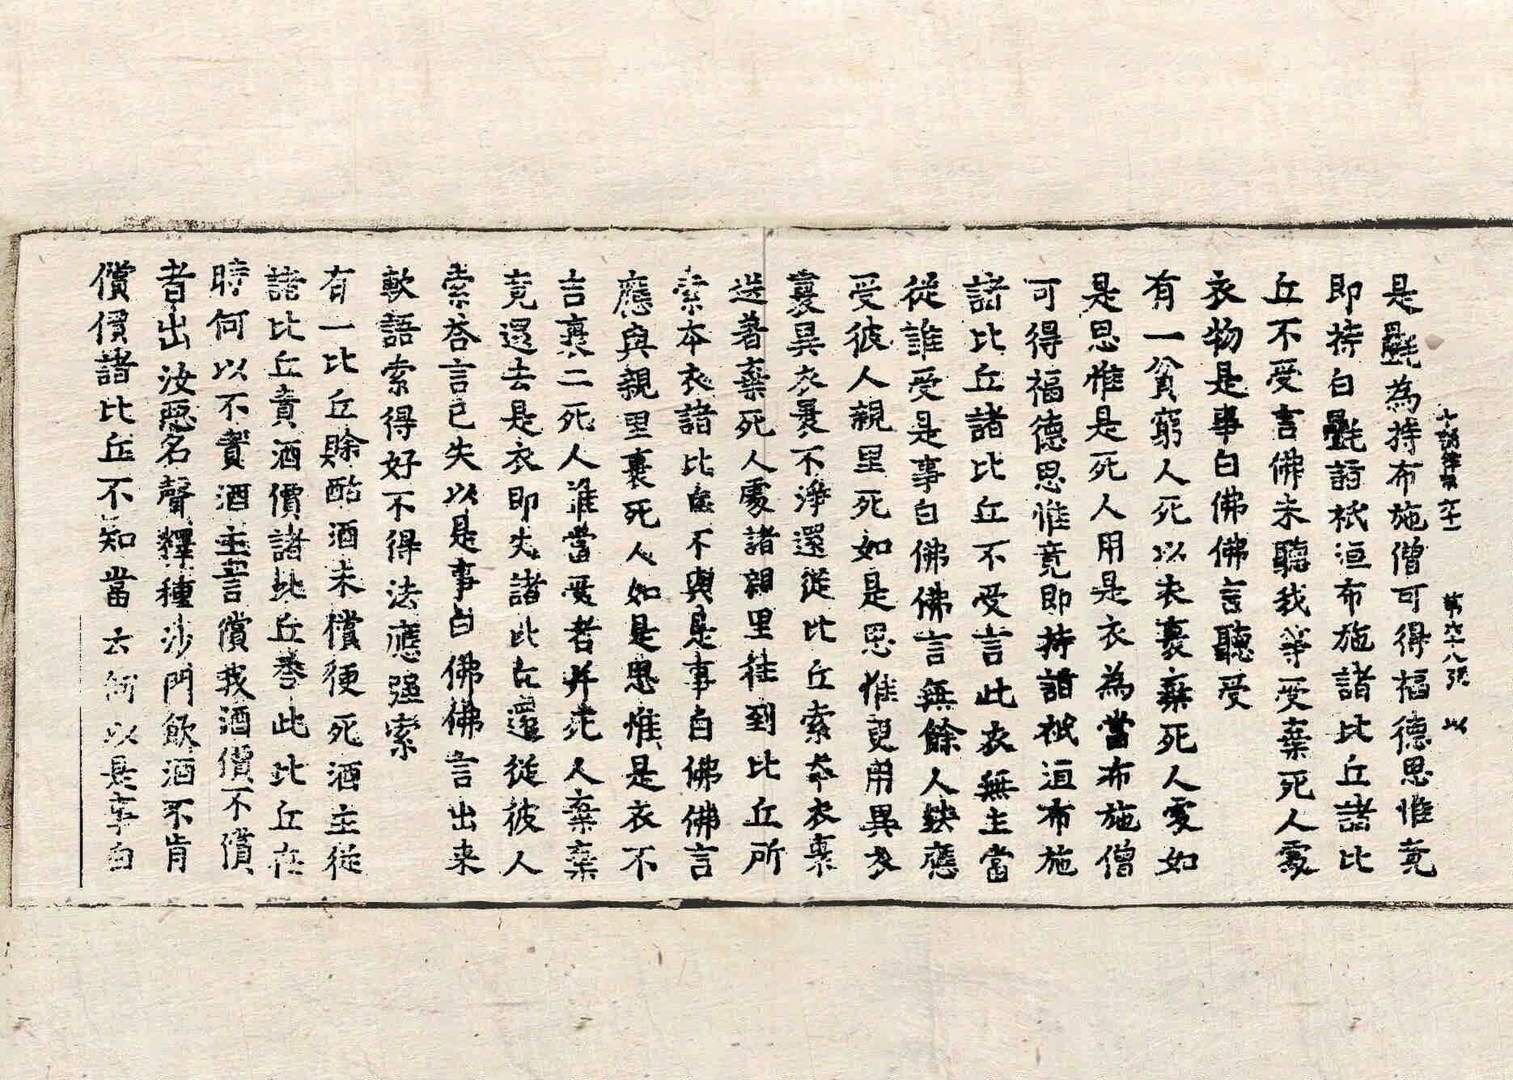 十誦律第六十一 第六十八張 以
是氎為持布施僧可得福德思惟竟
即持白氎詣祇洹布施諸比丘諸比
丘不受言佛未聽我等受棄死人處
衣物是事白佛佛言聽受
有一貧窮人死以衣裹棄死人處如
是思惟是死人用是衣為當布施僧
可得福德思惟竟即持詣祇洹布施
諸比丘諸比丘不受言此衣無主當
從誰受是事白佛佛言無餘人訣應
受彼人親里死如是思惟更用異衣
裹異衣裹不淨還從比丘索本衣裹
送著棄死人處諸親里往到比丘所
索本衣諸比丘不與是事白佛佛言
應與親里裹死人如是思惟是衣不
言裹二死人誰當受者并死人棄棄
竟還去是衣即失諸比丘還從彼人
索答言已失以是事白佛佛言出来
軟語索得好不得法應强索
有一比丘賒酤酒未償便死酒主從
諸比丘責酒價諸比丘答此比丘在
時何以不責酒主言償我酒價不償
者出汝惡名聲釋種沙門飲酒不肯
償價諸比丘不知當云何以是事白